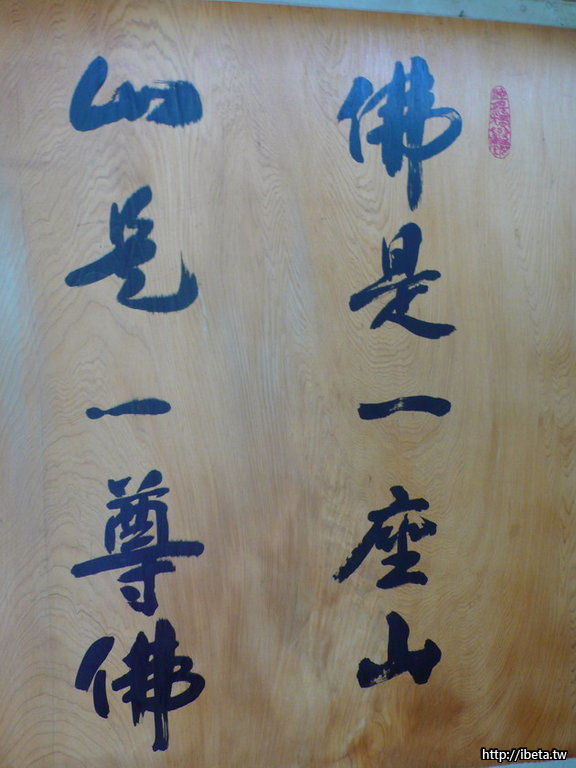 佛是一座山
山是一尊佛
http://ibeta.tw